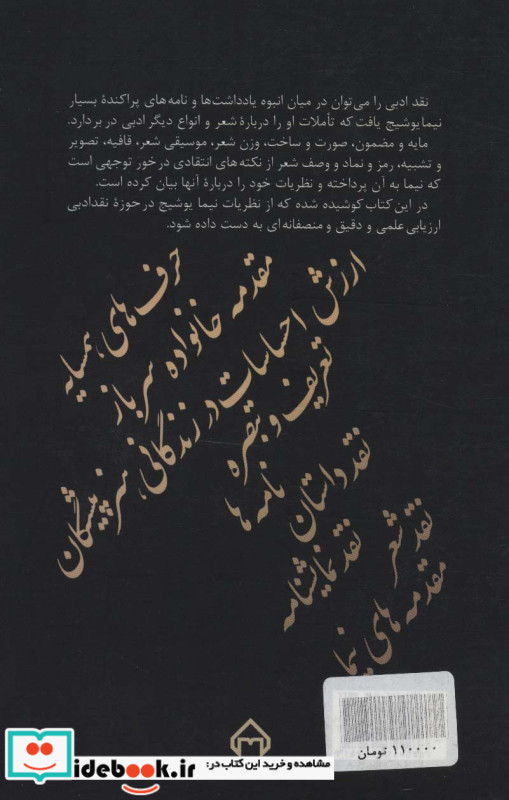 نقد ادبی را می‌توان در میان انبوه یادداشت‌ها و نامه‌های پراکندهٔ بسیار
نیما یوشیج یافت که تأملات او را دربارهٔ شعر و انواع دیگر ادبی در بردارد.
مایه و مضمون، صورت و ساخت، وزن شعر، موسیقی شعر، قافیه، تصویر
و تشبیه، رمز و نماد و وصف شعر از نکته‌های انتقادی درخور توجهی است
که نیما به آن پرداخته و نظریات خود را دربارهٔ آنها بیان کرده است.
در این کتاب کوشیده شده که از نظریات نیما یوشیج در حوزهٔ نقدادبی
ارزیابی علمی و دقیق و منصفانه‌ای به دست داده شود.
حرف‌های همسایه
مقدمه خانواده سرباز
ارزش احساسات در زندگانی هنرپیشگان
تعریف و تبصره
نامه‌ها
نقد داستان
نقد نمایشنامه
نقد شعر
مقدمه‌های نیما
۱۱۰۰۰۰ تومان
مشاهده و خرید این کتاب در:
idebook.ir